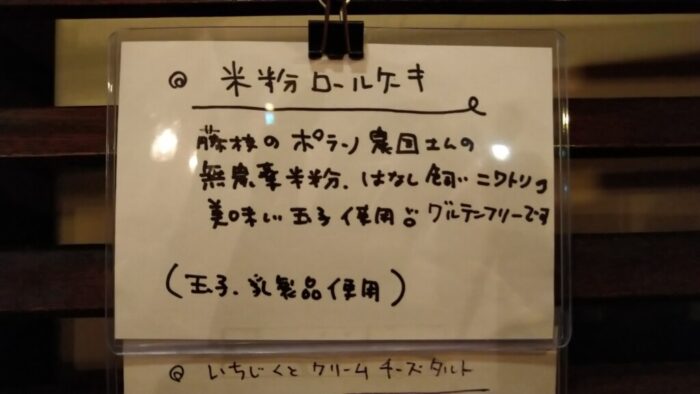 ◎ 米粉ロールケーキ
藤枝のポラーノ農園さんの
無農薬米粉、はなし飼いニワトリの
美味い玉子使用。グルテンフリーです
(玉子、乳製品使用)
◎ いちじくとクリームチーズタルト